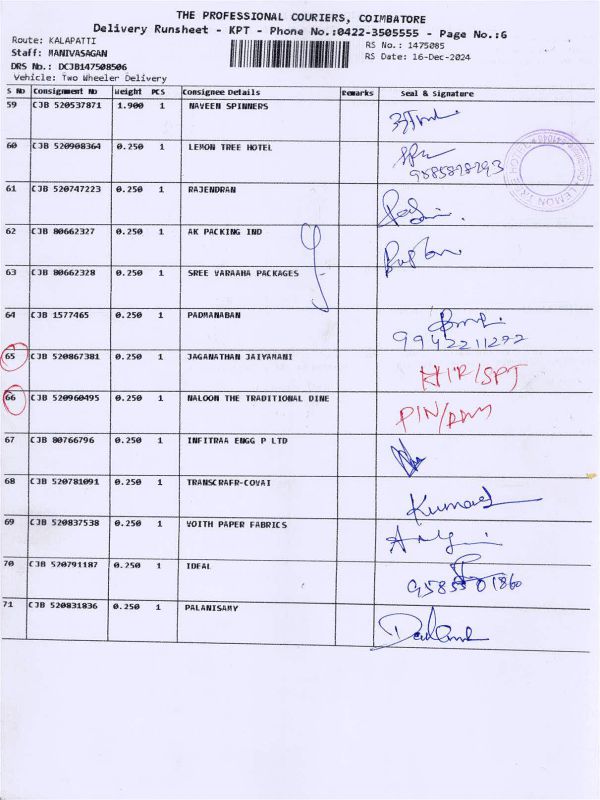 THE PROFESSIONAL COURIERS, COIMBATORE
Delivery Runsheet - KPT - Phone No.:0422-3505555 - Page No.:6
Route: KALAPATTI
RS No.: 1475085
Staff: MANIVASAGAN
RS Date: 16-Dec-2024
DRS No.: DCJB147508506
Vehicle: Two Wheeler Delivery
S No Consignment No Weight PCS Consignee Details Remarks Seal & Signature
59 CJB 520537871 1.900 1 NAVEEN SPINNERS
60 CJB 520908364 0.250 1 LEMON TREE HOTEL
61 CJB 520747223 0.250 1 RAJENDRAN
62 CJB 80662327 0.250 1 AK PACKING IND
63 CJB 80662328 0.250 1 SREE VARAAHA PACKAGES
64 CJB 1577465 0.250 1 PADMANABAN
9942211272
65 CJB 520867381 0.250 1 JAGANATHAN JAIYAMANI
66 CJB 520960495 0.250 1 NALOON THE TRADITIONAL DINE
67 CJB 80766796 0.250 1 INFITRAA ENGG P LTD
68 CJB 520781091 0.250 1 TRANSCRAFR-COVAI
69 CJB 520837538 0.250 1 VOITH PAPER FABRICS
70 CJB 520791187 0.250 1 IDEAL
71 CJB 520831836 0.250 1 PALANISAMY